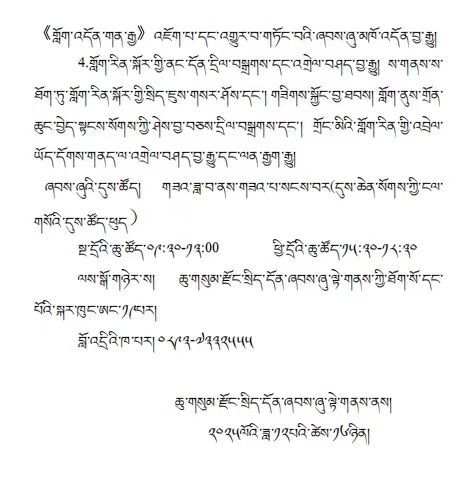 《གློག་འདོན་གན་རྒྱ》 འཛོག་པ་དང་འགྱུར་བ་གཏོང་བའི་ཞབས་ཞུ་མཁོ་འདོན་བྱ་རྒྱུ།
4.གློག་རིན་སྐོར་གྱི་ནང་དོན་དྲིལ་བསྒྲགས་དང་འགྲེལ་བཤད་བྱ་རྒྱུ། ས་གནས་ས་
ཐོག་ཏུ་གློག་རིན་སྐོར་གྱི་སྲིད་ཇུས་གསར་ཤོས་དང་། གཟིགས་སྐྱོང་བྱ་ཐབས། གློག་ནུས་གྲོན་
ཆུང་བྱེད་སྟངས་སོགས་ཀྱི་ཤེས་བྱ་བཅས་དྲིལ་བསྒྲགས་དང་། གྲོང་མིའི་གློག་རིན་གྱི་འབྲེལ་
ཡོད་དོགས་གནད་ལ་འགྲེལ་བཤད་བྱ་རྒྱུ་དང་ལན་རྒྱག་རྒྱུ།
ཞབས་ཞུའི་དུས་ཚོད། གཟའ་ཟླ་བ་ནས་གཟའ་པ་སངས་བར(དུས་ཆེན་སོགས་ཀྱི་ངལ་
གསོའི་དུས་ཚོད་ཕུད)
སྔ་དྲོའི་ཆུ་ཚོད་༠༩:༣༠-༡༣:00 ཕྱི་དྲོའི་ཆུ་ཚོད་༡༥:༣༠-༡༨:༣༠
ལས་སྒོ་གཉེར་ས། ཆུ་གསུམ་རྫོང་སྲིད་དོན་ཞབས་ཞུ་ལྟེ་གནས་ཀྱི་ཐོག་སོ་དང་
པོའི་སྐར་ཁུང་ཨང་༡༩པར།
བློ་འདྲིའི་ཁ་པར། ༠༨༩༣-༧༣༣༢༥༥༥
ཆུ་གསུམ་རྫོང་སྲིད་དོན་ཞབས་ཞུ་ལྟེ་གནས་ནས།
༢༠༢༥ལོའི་ཟླ་༡༢པའི་ཚེས་༡༦ཉིན།